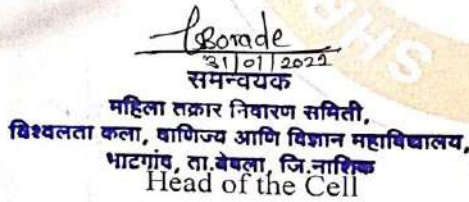 Borade
31/01/2022
समन्वयक
महिला तक्रार निवारण समिती,
विश्वलता कला, वाणिज्य आणि विज्ञान महाविद्यालय,
भाटगांव, ता.येवला, जि.नाशिक
Head of the Cell